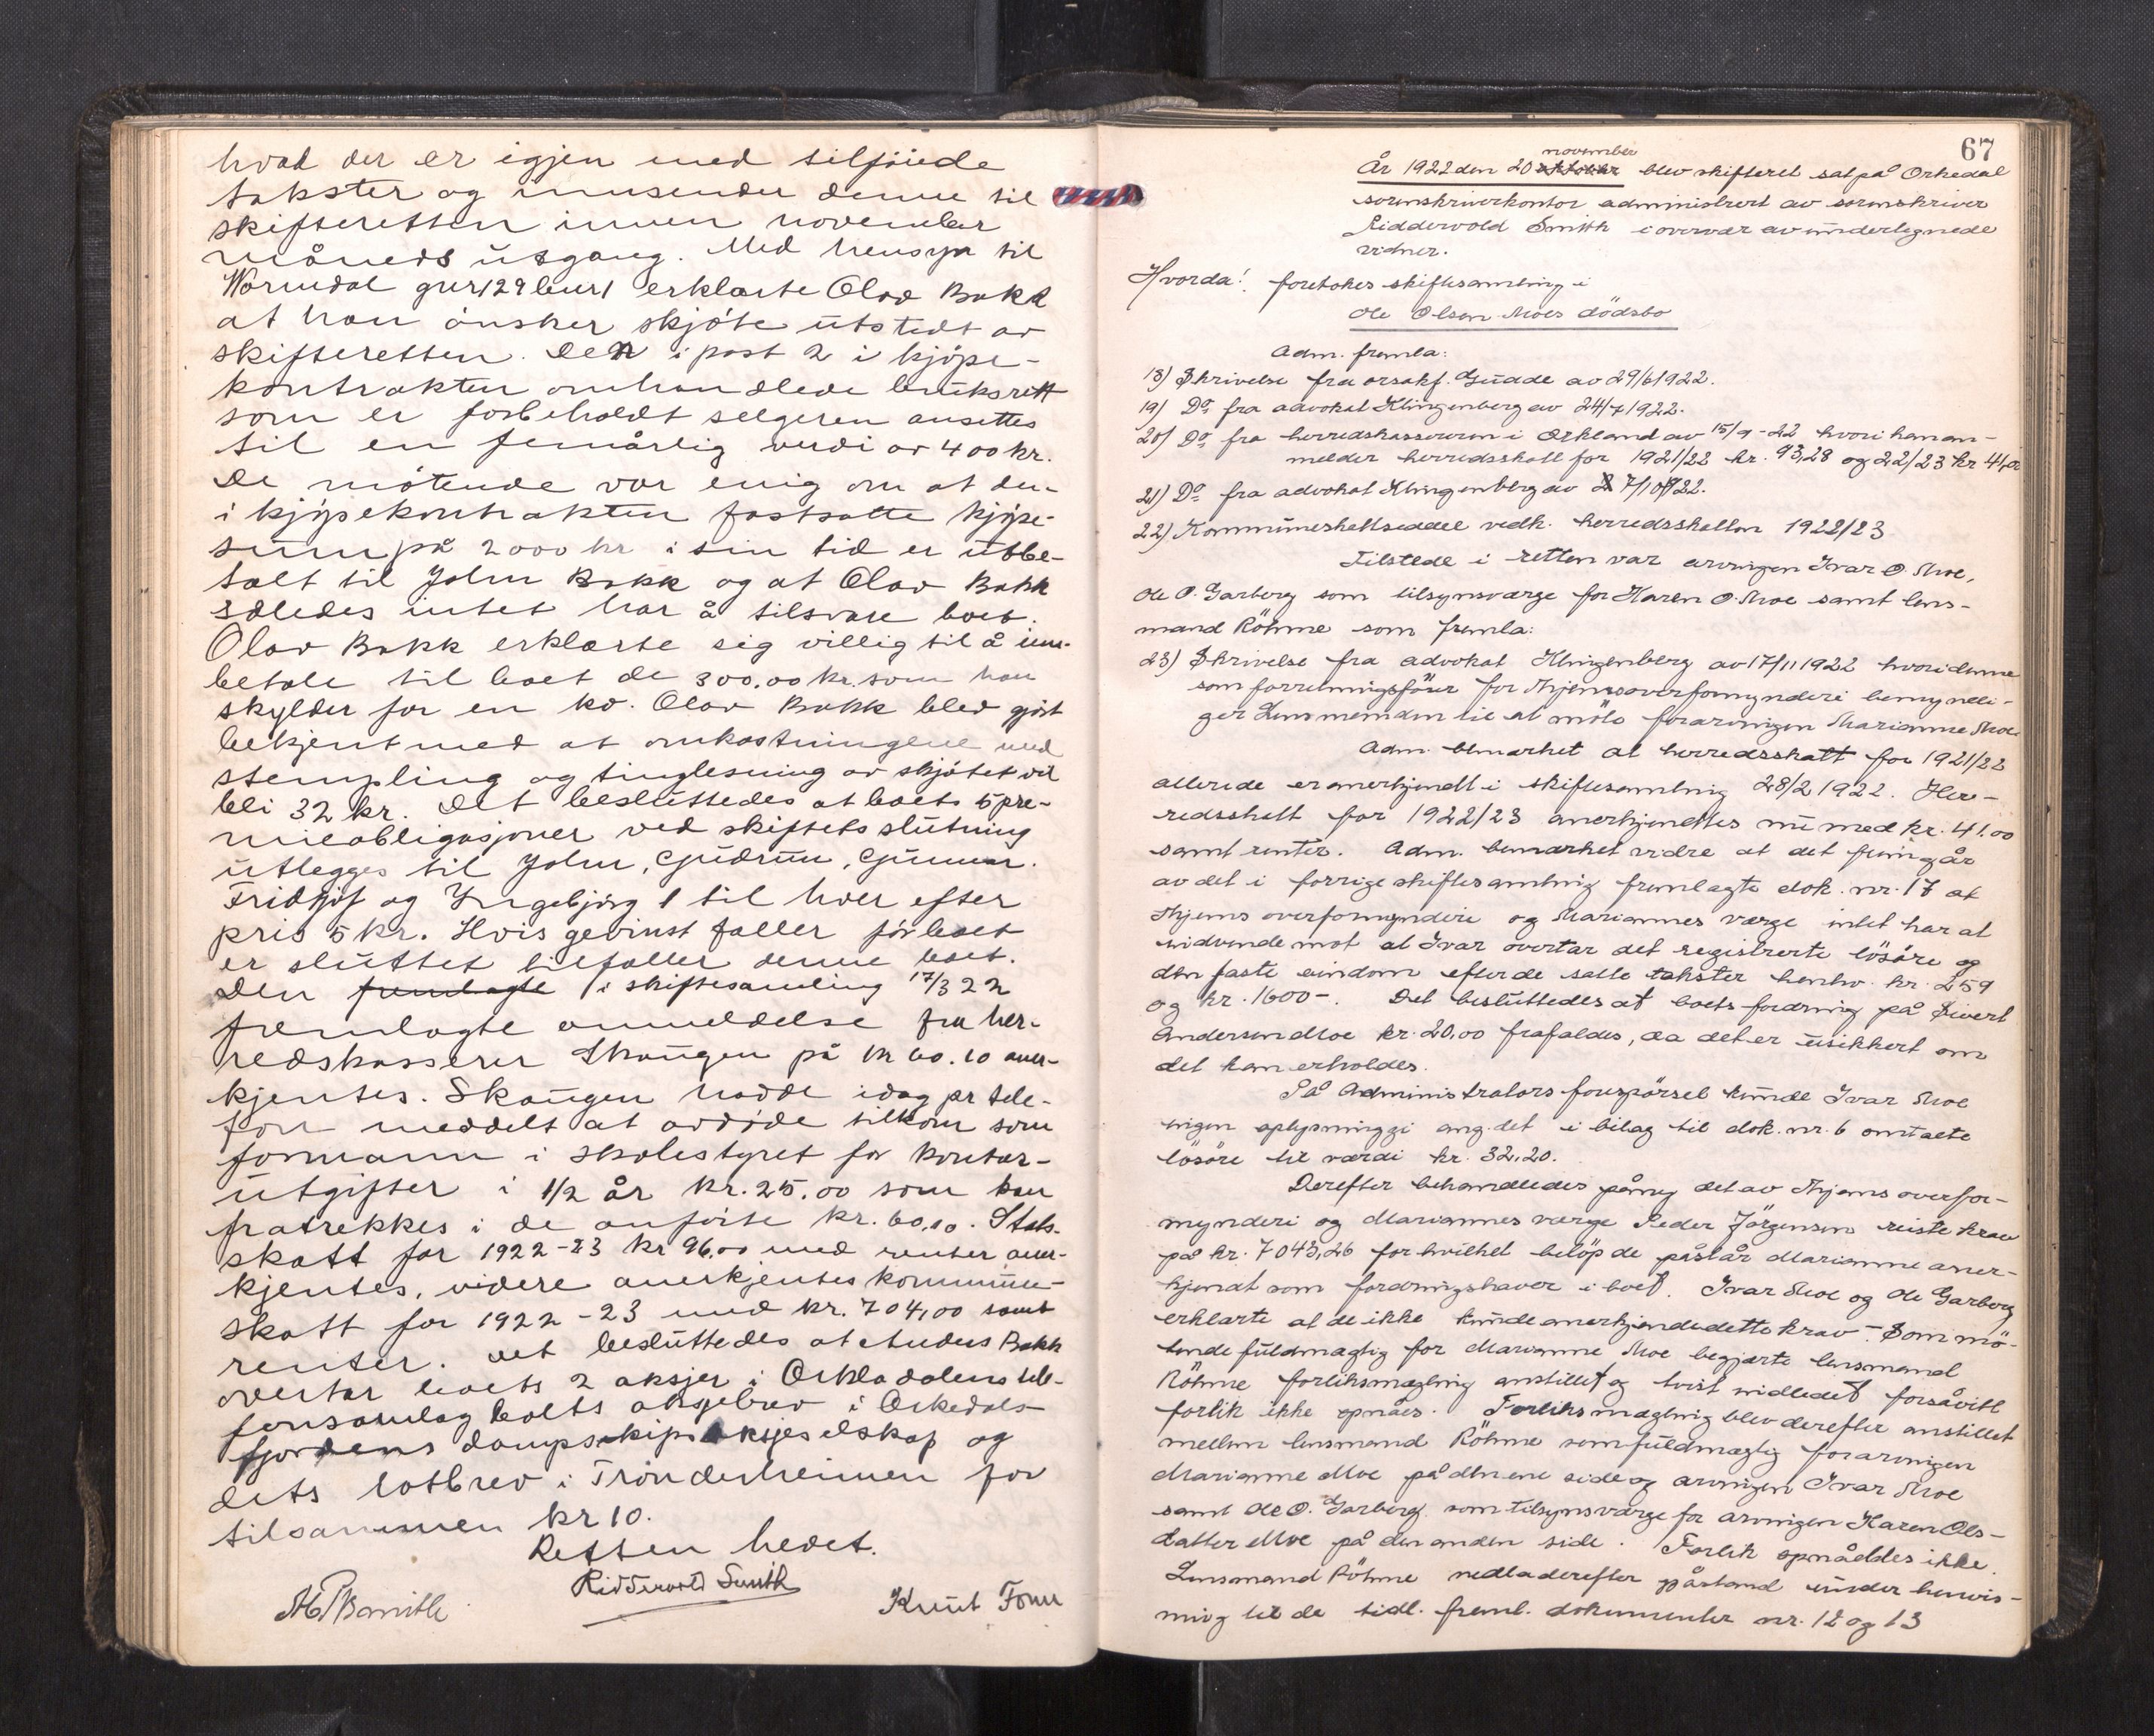 hvad der er igjen med tilföiede
takster og innsender denne til
skifteretten innen november
måneds utgang. Med hensyn til
Wormdal gnr 129 bnr 1 erklærte Olav Bakk
at han ønsker skjöte utstedt av
skifteretten. Den i post 2 i kjöpe-
kontrakten omhandlede bruksrett
som er forbeholdt selgeren ansettes
til en femårlig verdi av 400 kr.
De mötende var enig om at den
i kjöpekontrakten fastsatte kjöpe-
sum på 2000 kr i sin tid er utbe-
talt til John Bakk og at Olav Bakk
således intet har å tilsvare boet.
Olav Bakk erklærte sig villig til å inn-
betale til boet de 300.00 kr. som han
skylder for en ko. Olav Bakk blev gjort
bekjent med at omkostningene med
stempling og tinglesning av skjötet vil
bli 32 kr. Det besluttedes at boets 5 pre-
mieobligasjoner ved skiftets slutning
utlegges til John, Gudrun, Gunnar.
Fridtjof og Ingebjörg 1 til hver efter
pris 5 kr. Hvis gevinst faller för boet
er sluttet tilfaller denne boet.
Den fremlagte i skiftesamling 17/3 22
fremlagte anmeldelse fra her-
redskasserer Skaugen på kr 60.10 aner-
kjentes. Skaugen hadde idag pr tele-
fon meddelt at avdöde tilkom som
formann i skolestyret for kontor-
utgifter i 1/2 år kr. 25.00 som kan
fratrekkes i de anförte kr. 60,10. Stats-
skatt for 1922-23 kr 96.00 med renter aner-
kjentes, videre anerkjentes kommune-
skatt for 1922-23 med kr. 704,00 samt
renter. Det besluttedes at Anders Bakk
overtar boets 2 aksjer i Orkladalens tele-
fonsamlag boets aksjebrev i Orkedals-
fjordens dampskipsaksjeselskap og
dets lotbrev i Trönderheimen for
tilsammen kr 10.
Retten hevet.
Ridderwold Smith
Knut Fonn
67
november
År 1922 den 20 oktober blev skifteret sat på Orkedal
sorenskriverkontor administrert av sorenskriver
Ridderwold Smith i overvær av undertegnede
vidner.
Hvorda! foretokes skiftesamling i
Ole Olsen Moes dödsbo
Adm. fremla:
18) Skrivelse fra orsakf. Guade av 29/6 1922.
19) Do fra advokat Klingenberg av 24/7 1922.
20) Do fra herredskassereren i Orkland av 15/9-22 hvori han an-
melder herredsskatt for 1921/22 kr. 93,28 og 22/23 kr 41,00
21) Do fra advokat Klingenberg av 7/10 1922.
22) Kommuneskattseddel vedk. herredsskatten 1922/23
Tilstede i retten var arvingen Ivar O. Moe,
Ole O. Garberg som tilsynsværge for Karen O. Moe samt lens-
mand Röhme som fremla:
23) Skrivelse fra advokat Klingenberg av 17/11 1922 hvori denne
som forretningsförer for Thjems overformynderi bemyndi-
ger Lensmanden til at möte for arvingen Marianne Moe.
Adm. bemærket at herredsskatt for 1921/22
allerede er anerkjendt i skiftesamling 28/2 1922. Her-
redsskatt for 1922/23 anerkjendtes nu med kr. 41.00
samt renter. Adm. bemærket videre at det fremgår
av det i forrige skiftesamling fremlagte dok. nr. 17 at
Thjems overformynderi og Mariannes værge intet har at
indvende mot at Ivar overtar det registrerte lösöre og
den faste eindom efter de satte takster henhv. kr. 259
og kr. 1600-. Det besluttedes at boets fordring på Sivert
Andersen Moe kr. 20,00 frafaldes, da det er usikkert om
det kan erholdes.
På Administrators forespörsel kunde Ivar Moe
ingen oplysning gi ang. det i bilag til dok. nr. 6 omtalte
lösöre til værdi kr. 32,20.
Derefter behandledes påny det av Thjems overfor-
mynderi og Mariannes værge Peder Jörgensen reiste krav
på kr. 7043,26 for hvilket belöp de påstår Marianne aner-
kjendt som fordringshaver i boet. Ivar Moe og Ole Garberg
erklærte at de ikke kunde anerkjende dette krav. Som mö-
tende fuldmægtig for Marianne Moe begjærte lensmand
Röhme forliksmægling anstillet og tvist indledet forsåvitt
forlik ikke opnåes. Forliksmægling blev derefter anstillet
mellem lensmand Röhme som fuldmægtig for arvingen
Marianne Moe på den ene side og arvingen Ivar Moe
samt Ole O. Garberg som tilsynsværge for arvingen Karen Ols-
datter Moe på den anden side. Forlik opnåddes ikke.
Lensmand Röhme nedla derefter påstand under henvis-
ning til de tidl. freml. dokumenter nr. 12 og 13